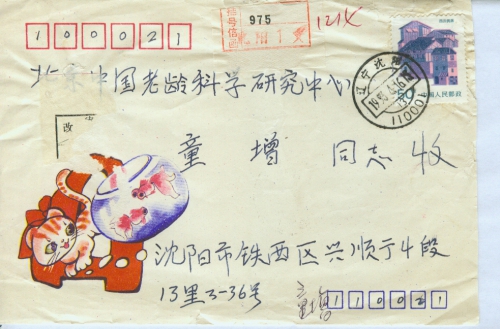 100021
挂号信函
975
沈阳 1
50
中国人民邮政
辽宁 沈阳
110001
北京中国老龄科学研究中心
改
童增 同志 收
沈阳市铁西区兴顺于4段
13里3-36号
童增
110021